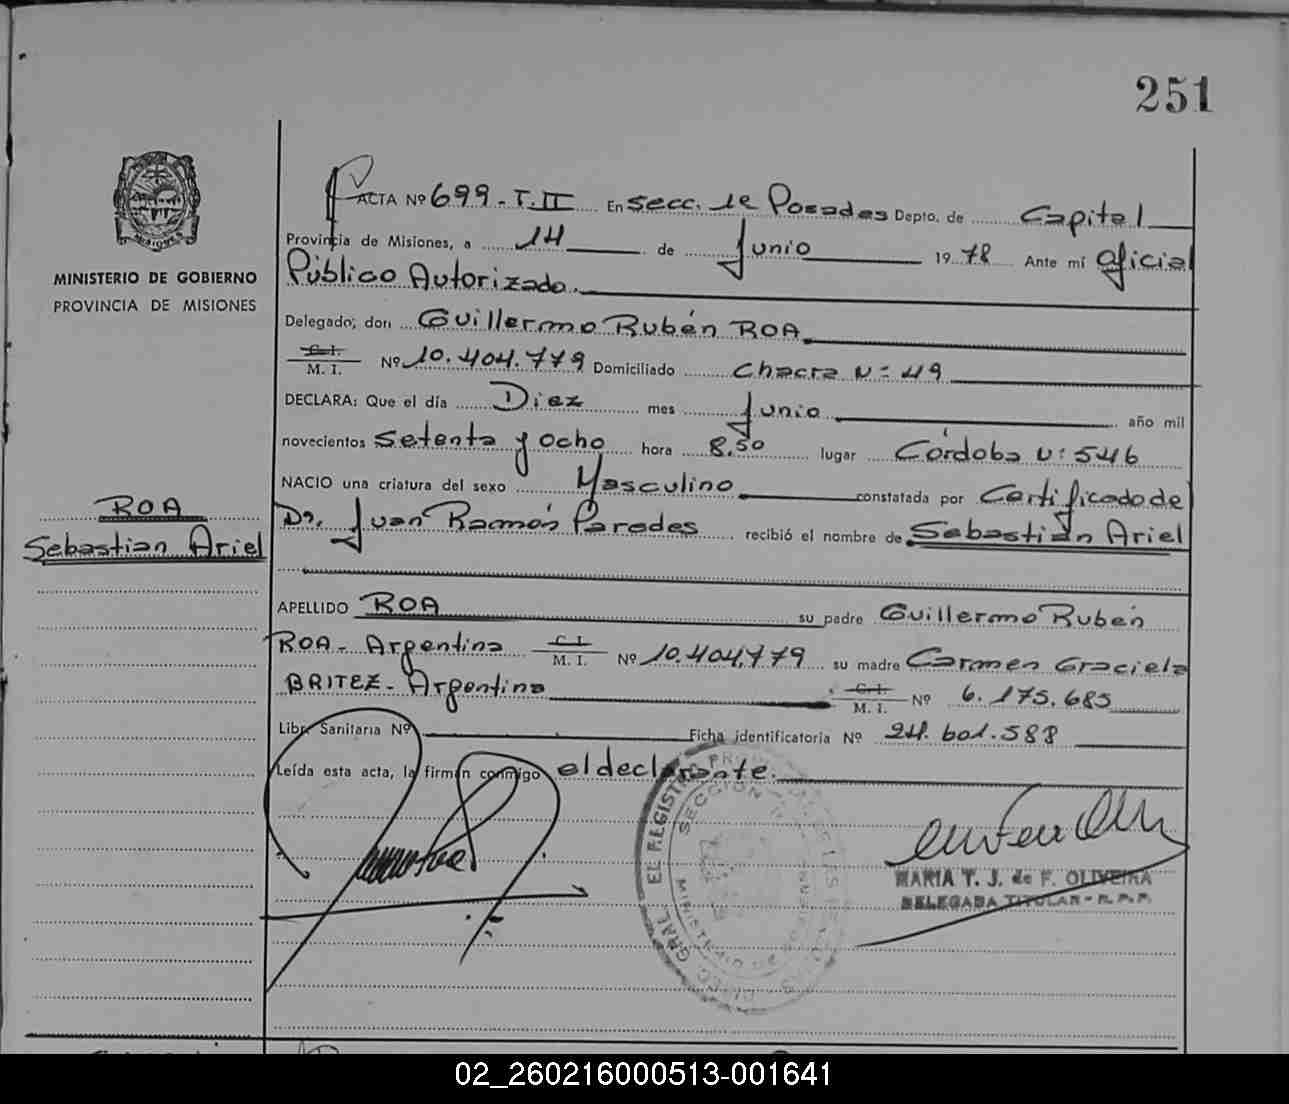 251
MISIONES
MINISTERIO DE GOBIERNO
PROVINCIA DE MISIONES
ROA
Sebastian Ariel
ACTA Nº 699 - T. II En Secc. 1e Posadas Depto. de Capital
Provincia de Misiones, a 14 de Junio 1978 Ante mí Oficial
Público Autorizado.
Delegado; don Guillermo Rubén ROA
C. I.
M. I. Nº 10.404.779 Domiciliado Chacra Nº 49
DECLARA: Que el día Diez mes Junio año mil
novecientos Setenta y Ocho hora 8.50 lugar Córdoba Nº 546
NACIO una criatura del sexo Masculino constatada por Certificado de
Dr. Juan Ramón Paredes recibió el nombre de Sebastián Ariel
APELLIDO ROA su padre Guillermo Rubén
ROA - Argentina C. I. M. I. Nº 10.404.779 su madre Carmen Graciela
BRITEZ - Argentina C. I. M. I. Nº 6.175.685
Libr. Sanitaria Nº Ficha identificatoria Nº 24.601.588
Leída esta acta, la firman conmigo el declarante.
DIREC. GRAL. EL REGISTRO PROV. DE LAS PERSONAS
SECCION
MARIA T. J. de F. OLIVEIRA
DELEGADA TITULAR - R. P. P.
02_260216000513-001641